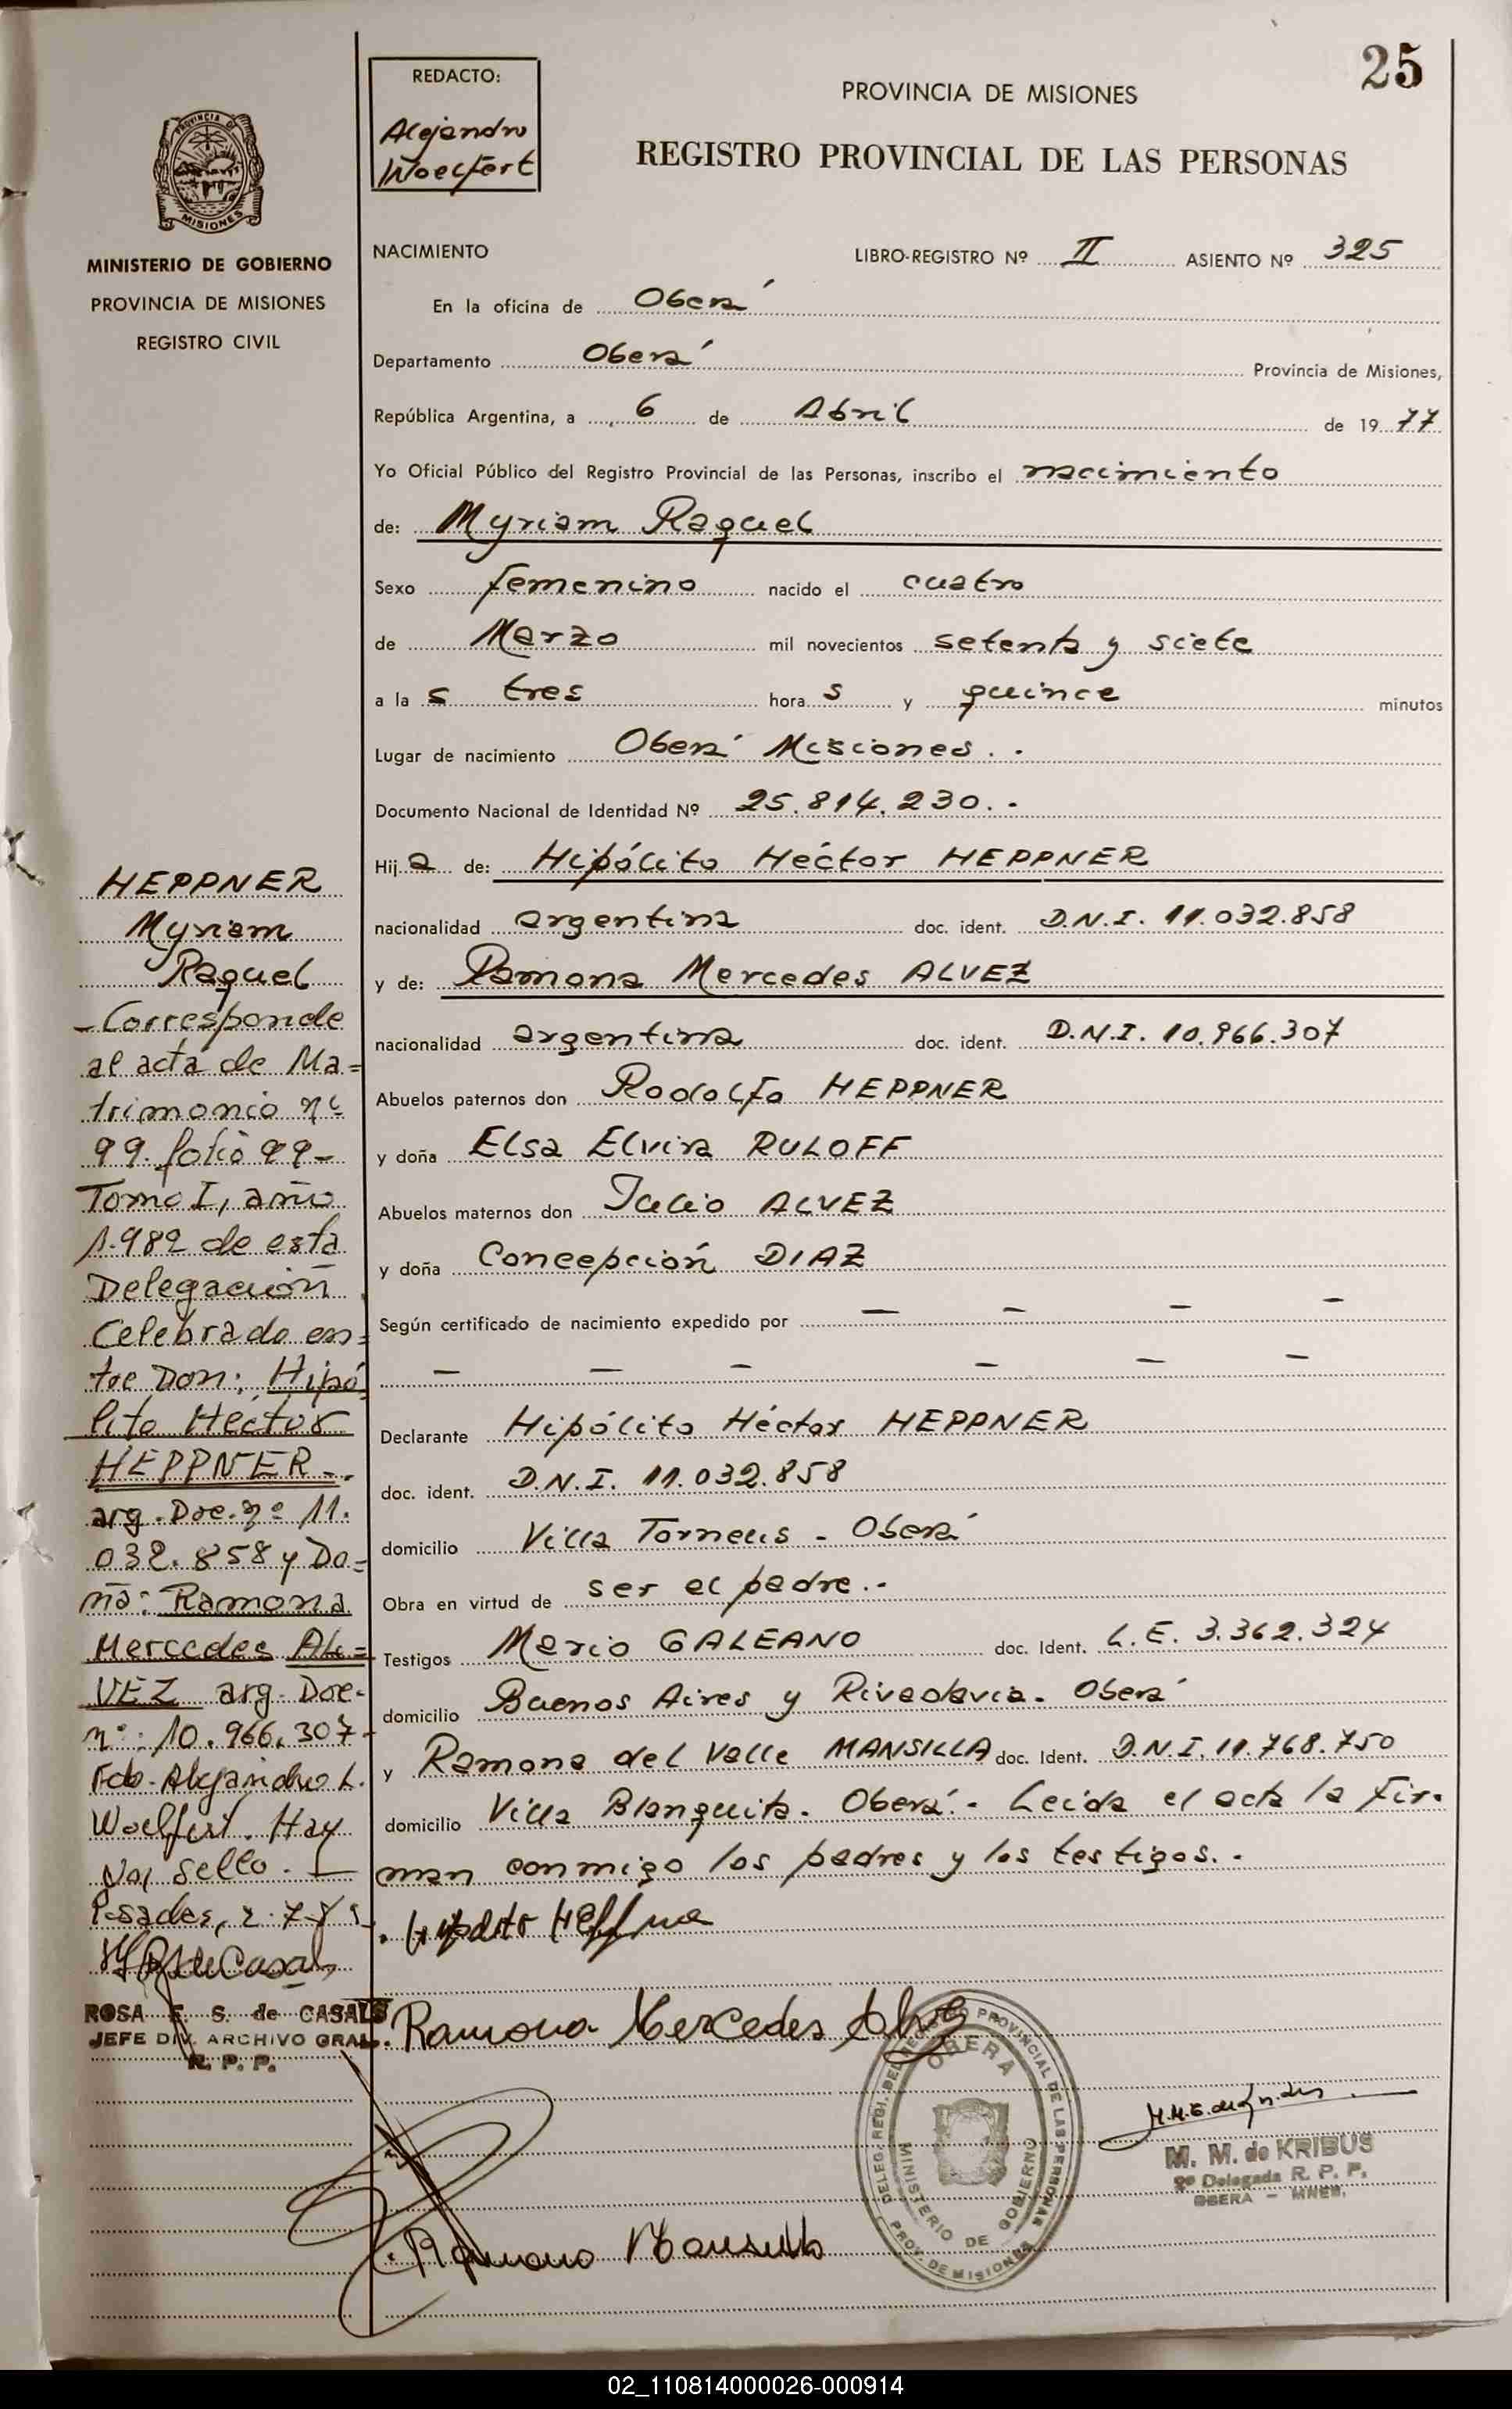 25
REDACTO:
Alejandro
Woelfert
PROVINCIA DE MISIONES
REGISTRO PROVINCIAL DE LAS PERSONAS
PROVINCIA DE
MISIONES
MINISTERIO DE GOBIERNO
PROVINCIA DE MISIONES
REGISTRO CIVIL
NACIMIENTO LIBRO-REGISTRO Nº II ASIENTO Nº 325
En la oficina de Oberá
Departamento Oberá Provincia de Misiones,
República Argentina, a 6 de Abril de 1977
Yo Oficial Público del Registro Provincial de las Personas, inscribo el nacimiento
de: Myriam Raquel
Sexo femenino nacido el cuatro
de Marzo mil novecientos setenta y siete
a la s tres hora s y quince minutos
Lugar de nacimiento Oberá Misiones . -
Documento Nacional de Identidad Nº 25.814.230. -
Hij a de: Hipólito Héctor HEPPNER
nacionalidad argentina doc. ident. D.N.I. 11.032.858
y de: Ramona Mercedes ALVEZ
nacionalidad argentina doc. ident. D.N.I. 10.966.307
Abuelos paternos don Rodolfo HEPPNER
y doña Elsa Elvira RULOFF
Abuelos maternos don Julio ALVEZ
y doña Concepción DIAZ
Según certificado de nacimiento expedido por — — — —
— — — — — —
Declarante Hipólito Héctor HEPPNER
doc. ident. D.N.I. 11.032.858
domicilio Villa Torneus - Oberá
Obra en virtud de ser el padre.-
Testigos Mario GALEANO doc. Ident. L.E. 3.362.324
domicilio Buenos Aires y Rivadavia. Oberá
y Ramona del Valle MANSILLA doc. Ident. D.N.I. 11.768.750
domicilio Villa Blanquita. Oberá.- Leida el acta la fir-
man conmigo los padres y los testigos. -
Hipolito Heppner
Ramona Mercedes Alvez
Ramona Mansilla
HEPPNER
Myriam
Raquel
- Corresponde
al acta de Ma=
trimonio nº
99. folio 99-
Tomo I, año
1.982 de esta
Delegación
Celebrado en=
tre Don: Hipó
lito Héctor
HEPPNER -.
arg. Doc. nº 11.
032.858 y Do=
ña: Ramona
Mercedes AL=
VEZ arg. Doc.
nº: 10.966.307-
Fdo. Alejandro L.
Woelfert. Hay
un sello. -
Posadas, 2.7.8
ROSA E. S. de CASALS
JEFE DIV. ARCHIVO GRAL.
R. P. P.
DELEG. REGI. DEL REGISTRO PROVINCIAL DE LAS PERSONAS
OBERA
MINISTERIO DE GOBIERNO
PROV. DE MISIONES
M. M. de KRIBUS
2º Delegada R. P. P.
OBERA - MNES.
02_110814000026-000914